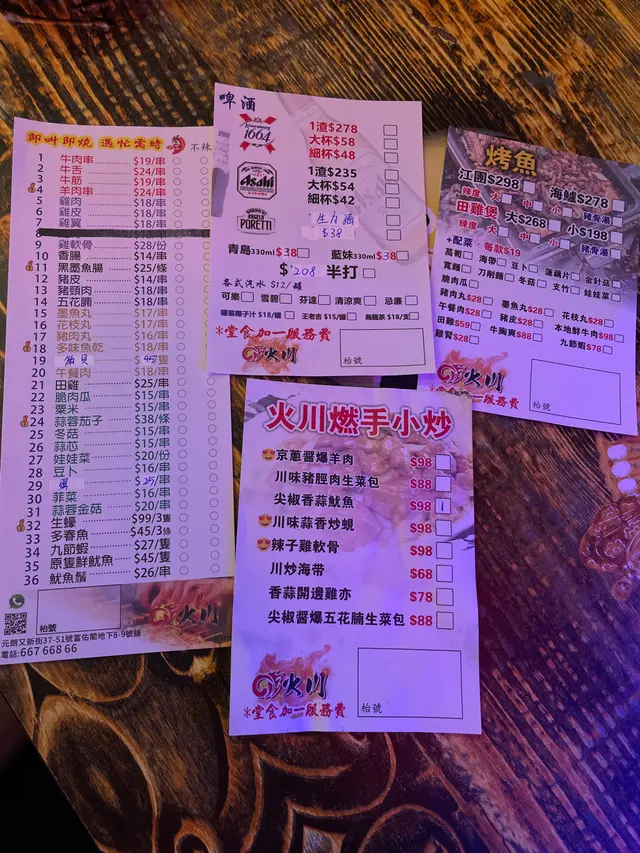 即叫即燒 遇忙需時
不辣
1 牛肉串 $19/串
2 牛舌 $24/串
3 牛筋 $19/串
4 羊肉串 $24/串
5 雞肉 $18/串
6 雞皮 $18/串
7 雞翼 $18/串
8
9 雞軟骨 $28/份
10 香腸 $14/串
11 黑墨魚腸 $25/條
12 豬皮 $14/串
13 豬頸肉 $18/串
14 五花腩 $18/串
15 墨魚丸 $17/串
16 花枝丸 $17/串
17 豬肉丸 $16/串
18 多味魚乾 $18/串
19 $45/隻
20 午餐肉 $18/串
21 田雞 $25/串
22 脆肉瓜 $15/串
23 粟米 $15/串
24 蒜蓉茄子 $38/條
25 冬菇 $15/串
26 蒜芯 $15/串
27 娃娃菜 $20/份
28 豆卜 $16/串
29 $25/串
30 菲菜 $16/串
31 蒜蓉金菇 $20/串
32 生蠔 $99/3隻
33 多春魚 $45/3條
34 九節蝦 $27/隻
35 原隻鮮魷魚 $45/隻
36 魷魚鬚 $26/串
火川
元朗又新街37-51號富佑閣地下8-9號舖
電話:667 668 66
啤酒
1664
1渣$278
大杯$58
細杯$48
Asahi
1渣$235
大杯$54
細杯$42
PORETTI
生力啤
$38
青島330ml$38 藍妹330ml$38
$208 半打
各式汽水 $12/罐
可樂 雪碧 芬達 清涼爽 忌廉
罐裝椰子汁 $18/罐 王老吉 $15/罐 烏龍茶 $18/支
*堂食加一服務費
火川
枱號
烤魚
江團$298 海鱸$278
辣度 大 中 小 豬骨湯
田雞煲 大$268 小$198
辣度 大 中 小 豬骨湯
+配菜: 每款$19
萵筍 海帶 豆卜 蓮藕片 金針菇
寬麵 刀削麵 冬菇 支竹 娃娃菜
脆肉瓜
豬肉丸$28 墨魚丸$28 花枝丸$28
午餐肉$28 豬皮$28 本地鮮牛肉$98
田雞$59 牛胸爽$88 九節蝦$78
雞腎$28
火川
*堂食加一服務費
枱號
火川燃手小炒
京蔥醬爆羊肉 $98
川味豬脛肉生菜包 $88
尖椒香蒜魷魚 $98
川味蒜香炒蜆 $98
辣子雞軟骨 $98
川炒海帶 $68
香蒜開邊雞亦 $78
尖椒醬爆五花腩生菜包 $88
火川
*堂食加一服務費
枱號